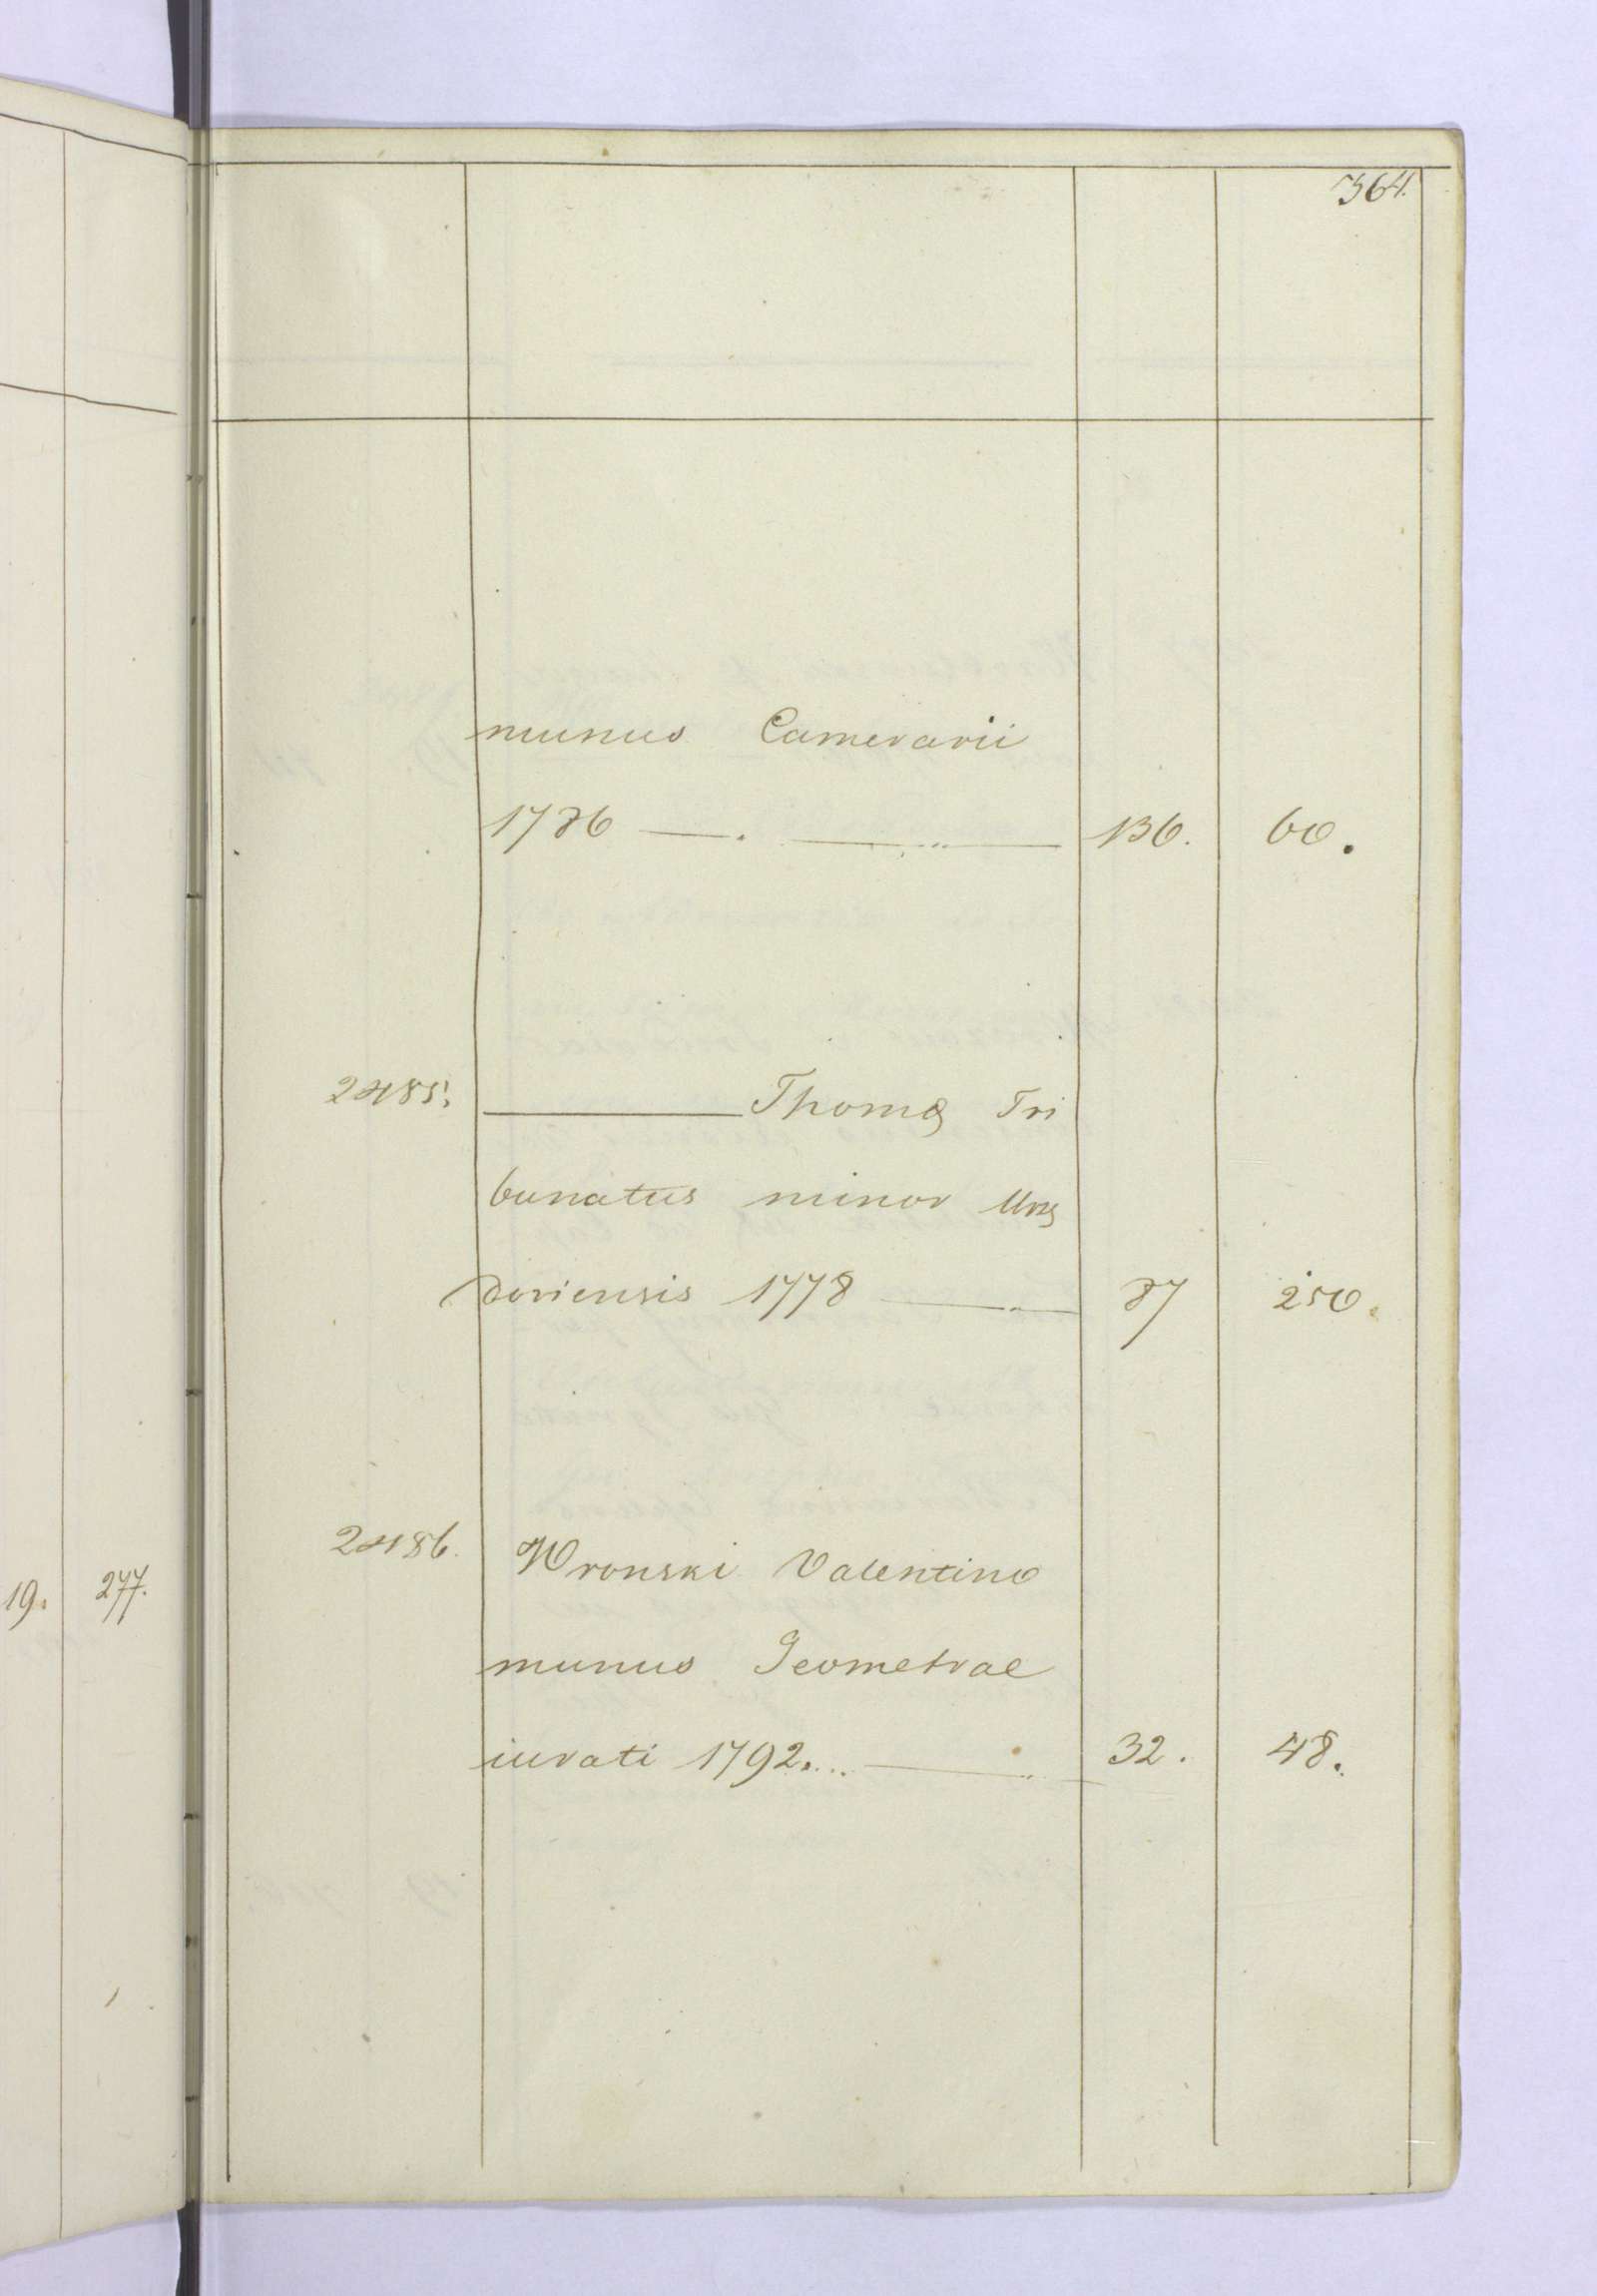 364.
munus Camerarii
1786 — . — 136. 60.
2485. — Thomæ Tri
bunatus minor
doriensis 1778 — 87 250.
2486. Wronski Valentino
munus Geometrae
iurati 1792.... — 32. 48.
19. 277.